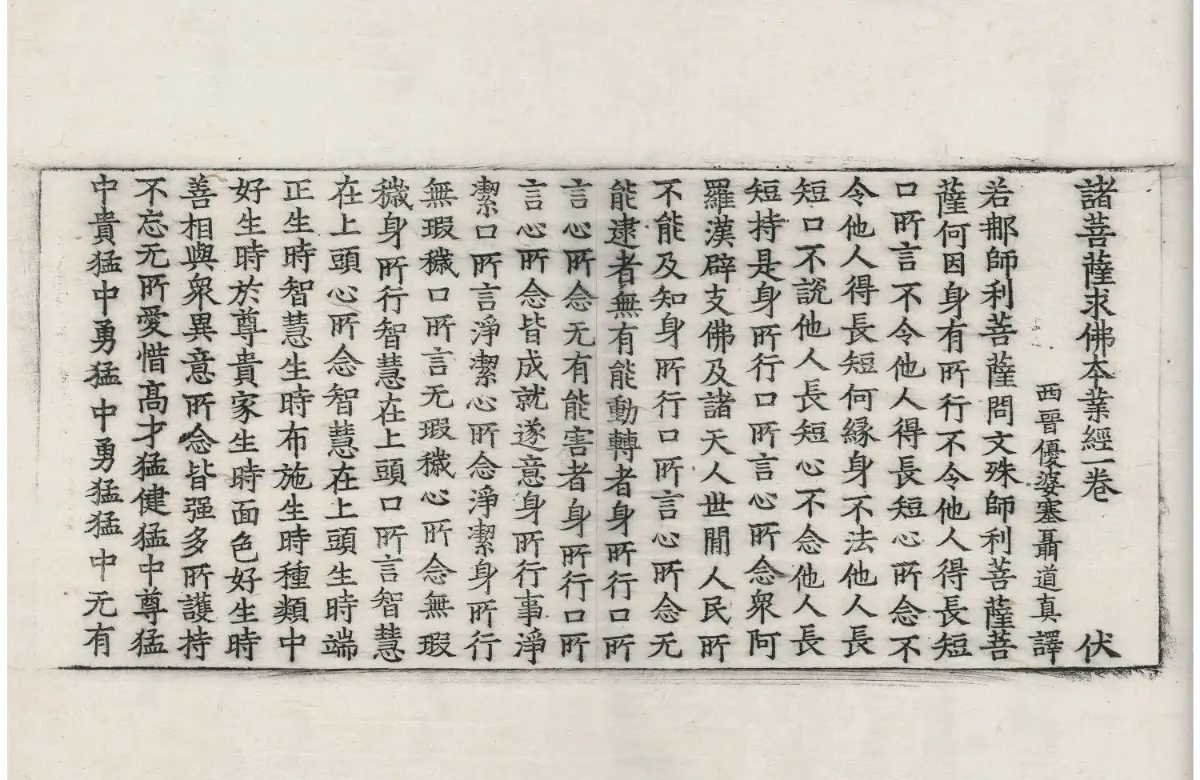 諸菩薩求佛本業經一卷 伏
西晉優婆塞聶道真譯
若郍師利菩薩問文殊師利菩薩菩
薩何因身有所行不令他人得長短
口所言不令他人得長短心所念不
令他人得長短何緣身不法他人長
短口不說他人長短心不念他人長
短持是身所行口所言心所念衆阿
羅漢辟支佛及諸天人世閒人民所
不能及知身所行口所言心所念无
能逮者無有能動轉者身所行口所
言心所念无有能害者身所行口所
言心所念皆成就遂意身所行事淨
潔口所言淨潔心所念淨潔身所行
無瑕穢口所言无瑕穢心所念無瑕
穢身所行智慧在上頭口所言智慧
在上頭心所念智慧在上頭生時端
正生時智慧生時布施生時種類中
好生時於尊貴家生時面色好生時
善相與衆異意所念皆强多所護持
不忘无所愛惜高才猛健猛中尊猛
中貴猛中勇猛中勇猛猛中无有